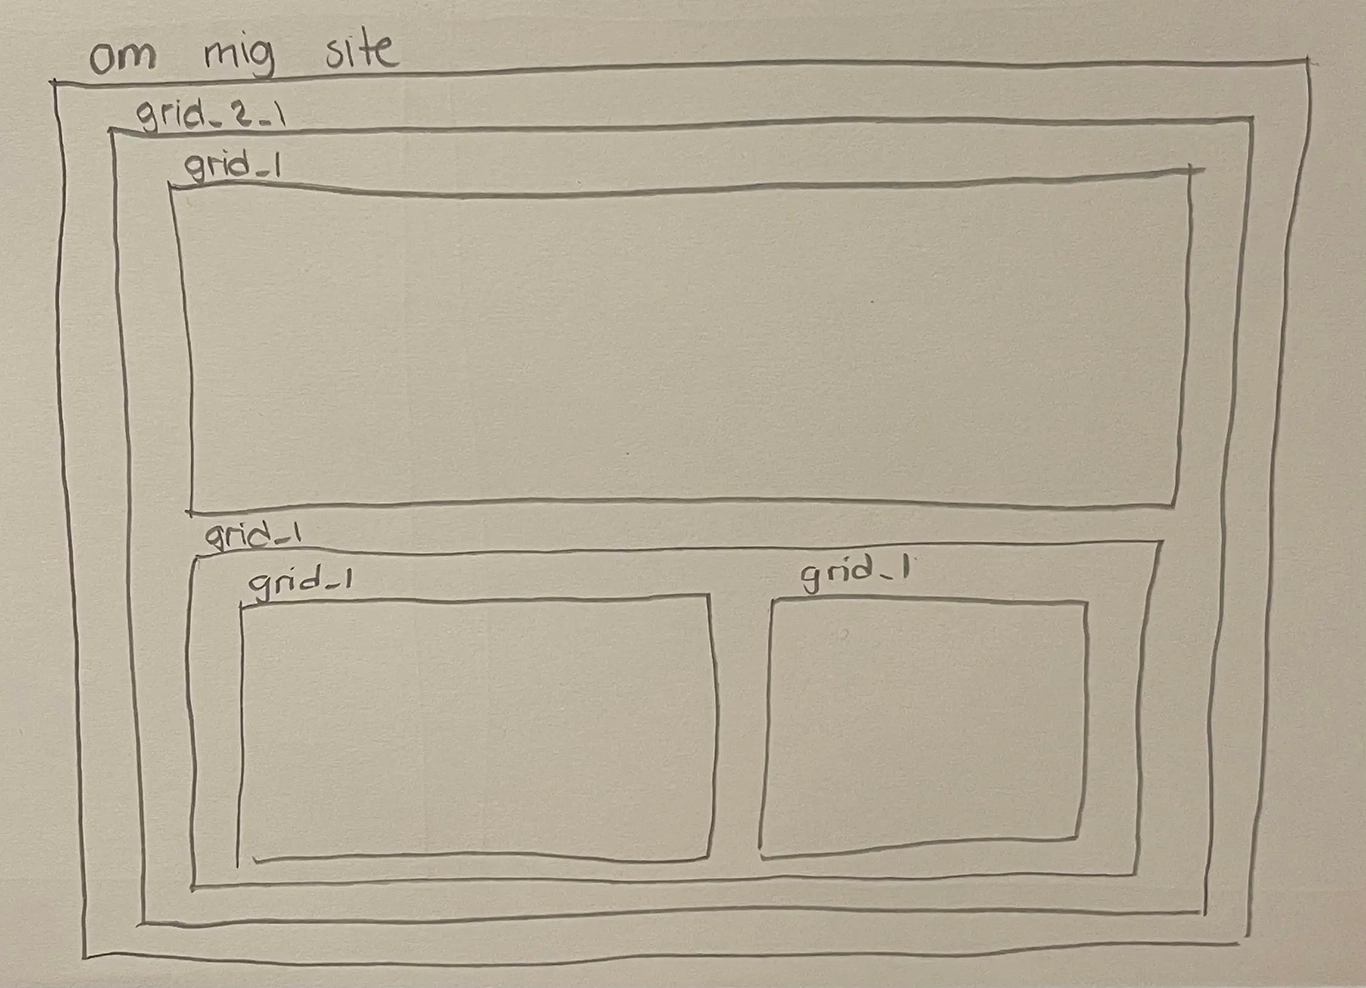 om mig site
grid_2_1
grid_1
grid_1
grid_1
grid_1